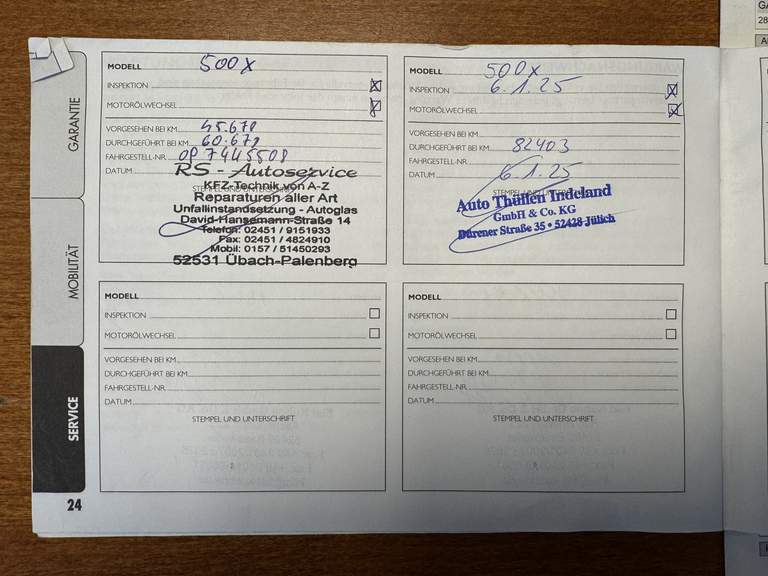 GARANTIE
MOBILITÄT
SERVICE
MODELL 500X
INSPEKTION
MOTORÖLWECHSEL
VORGESEHEN BEI KM 45.678
DURCHGEFÜHRT BEI KM 60.678
FAHRGESTELL-NR. 0P7445508
DATUM
STEMPEL UND UNTERSCHRIFT
RS - Autoservice
KFZ-Technik von A-Z
Reparaturen aller Art
Unfallinstandsetzung - Autoglas
David-Hansemann-Straße 14
Telefon: 02451 / 9151933
Fax: 02451 / 4824910
Mobil: 0157 / 51450293
52531 Übach-Palenberg
MODELL 500X
INSPEKTION 6.1.25
MOTORÖLWECHSEL
VORGESEHEN BEI KM
DURCHGEFÜHRT BEI KM 82403
FAHRGESTELL-NR.
DATUM 6.1.25
STEMPEL UND UNTERSCHRIFT
Auto Thüllen Indeland
GmbH & Co. KG
Dürener Straße 35 • 52428 Jülich
MODELL
INSPEKTION
MOTORÖLWECHSEL
VORGESEHEN BEI KM
DURCHGEFÜHRT BEI KM
FAHRGESTELL-NR.
DATUM
STEMPEL UND UNTERSCHRIFT
MODELL
INSPEKTION
MOTORÖLWECHSEL
VORGESEHEN BEI KM
DURCHGEFÜHRT BEI KM
FAHRGESTELL-NR.
DATUM
STEMPEL UND UNTERSCHRIFT
24